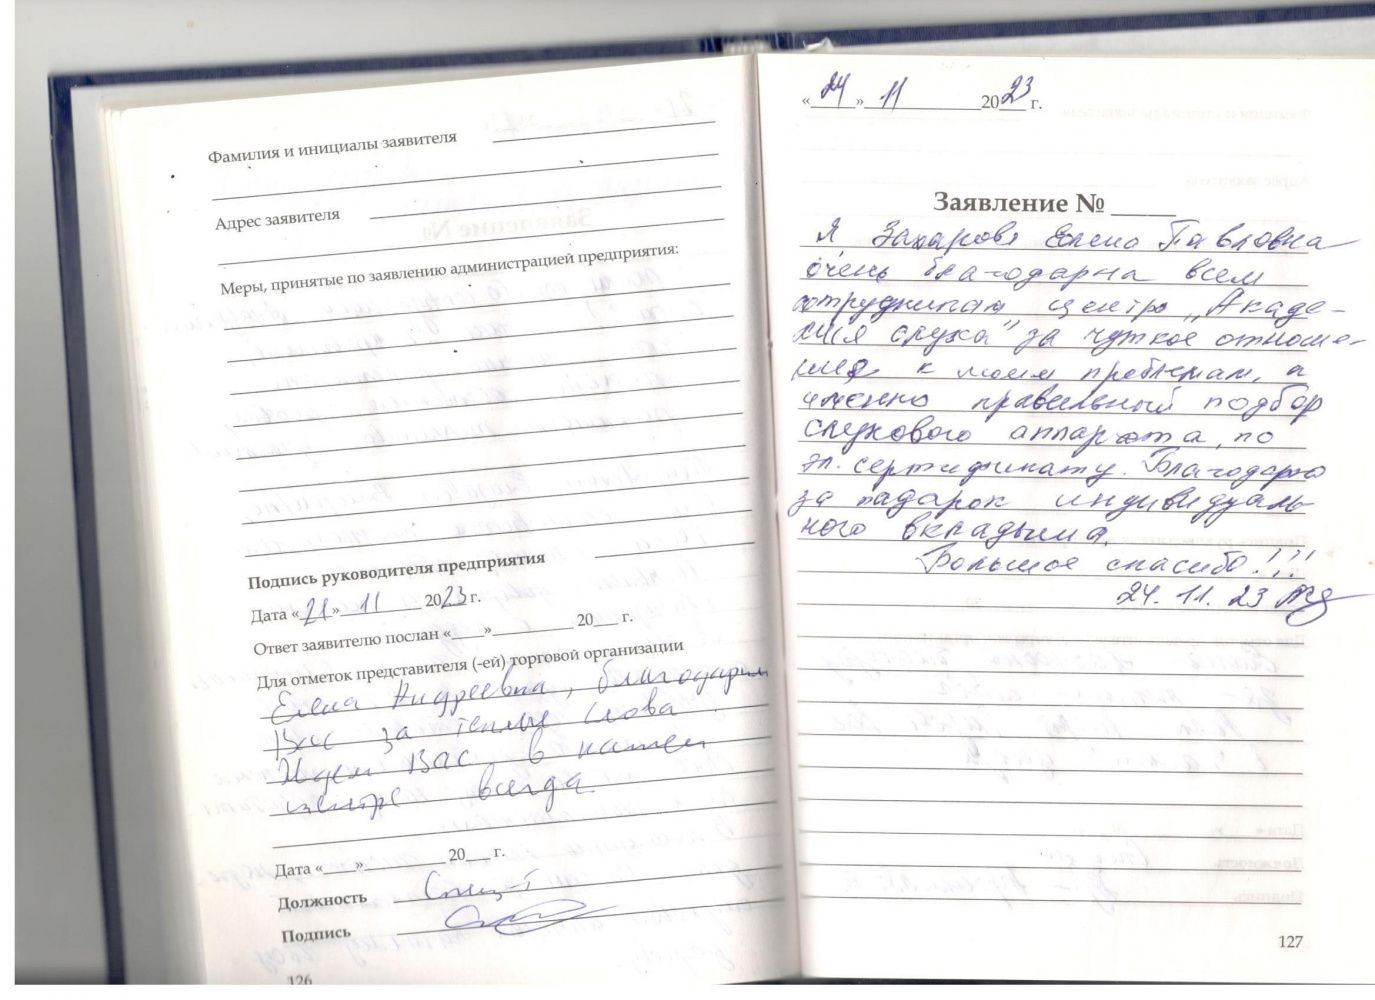 Фамилия и инициалы заявителя
Адрес заявителя
Меры, принятые по заявлению администрацией предприятия:
Подпись руководителя предприятия
Дата «21» 11 2023 г.
Ответ заявителю послан «___» ________ 20___ г.
Для отметок представителя (-ей) торговой организации
Елена Андреевна, благодарим
Вас за теплые слова.
Ждем Вас в нашем
центре всегда.
Дата «___» ________ 20___ г.
Должность Спец-т
Подпись
126
«24» 11 2023 г.
Заявление № _____
Я Захарова Елена Павловна
очень благодарна всем
сотрудникам центра „Акаде-
мия слуха" за чуткое отноше-
ние к моим проблемам, а
именно правильный подбор
слухового аппарата, по
эл. сертификату. Благодарю
за падарок индивидуаль
ного вкладыша.
Большое спасибо!!!
24. 11. 23
127